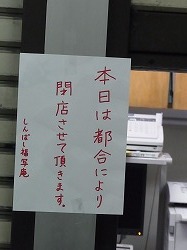 本日は都合により
閉店させて頂きます。
しんばし福写庵